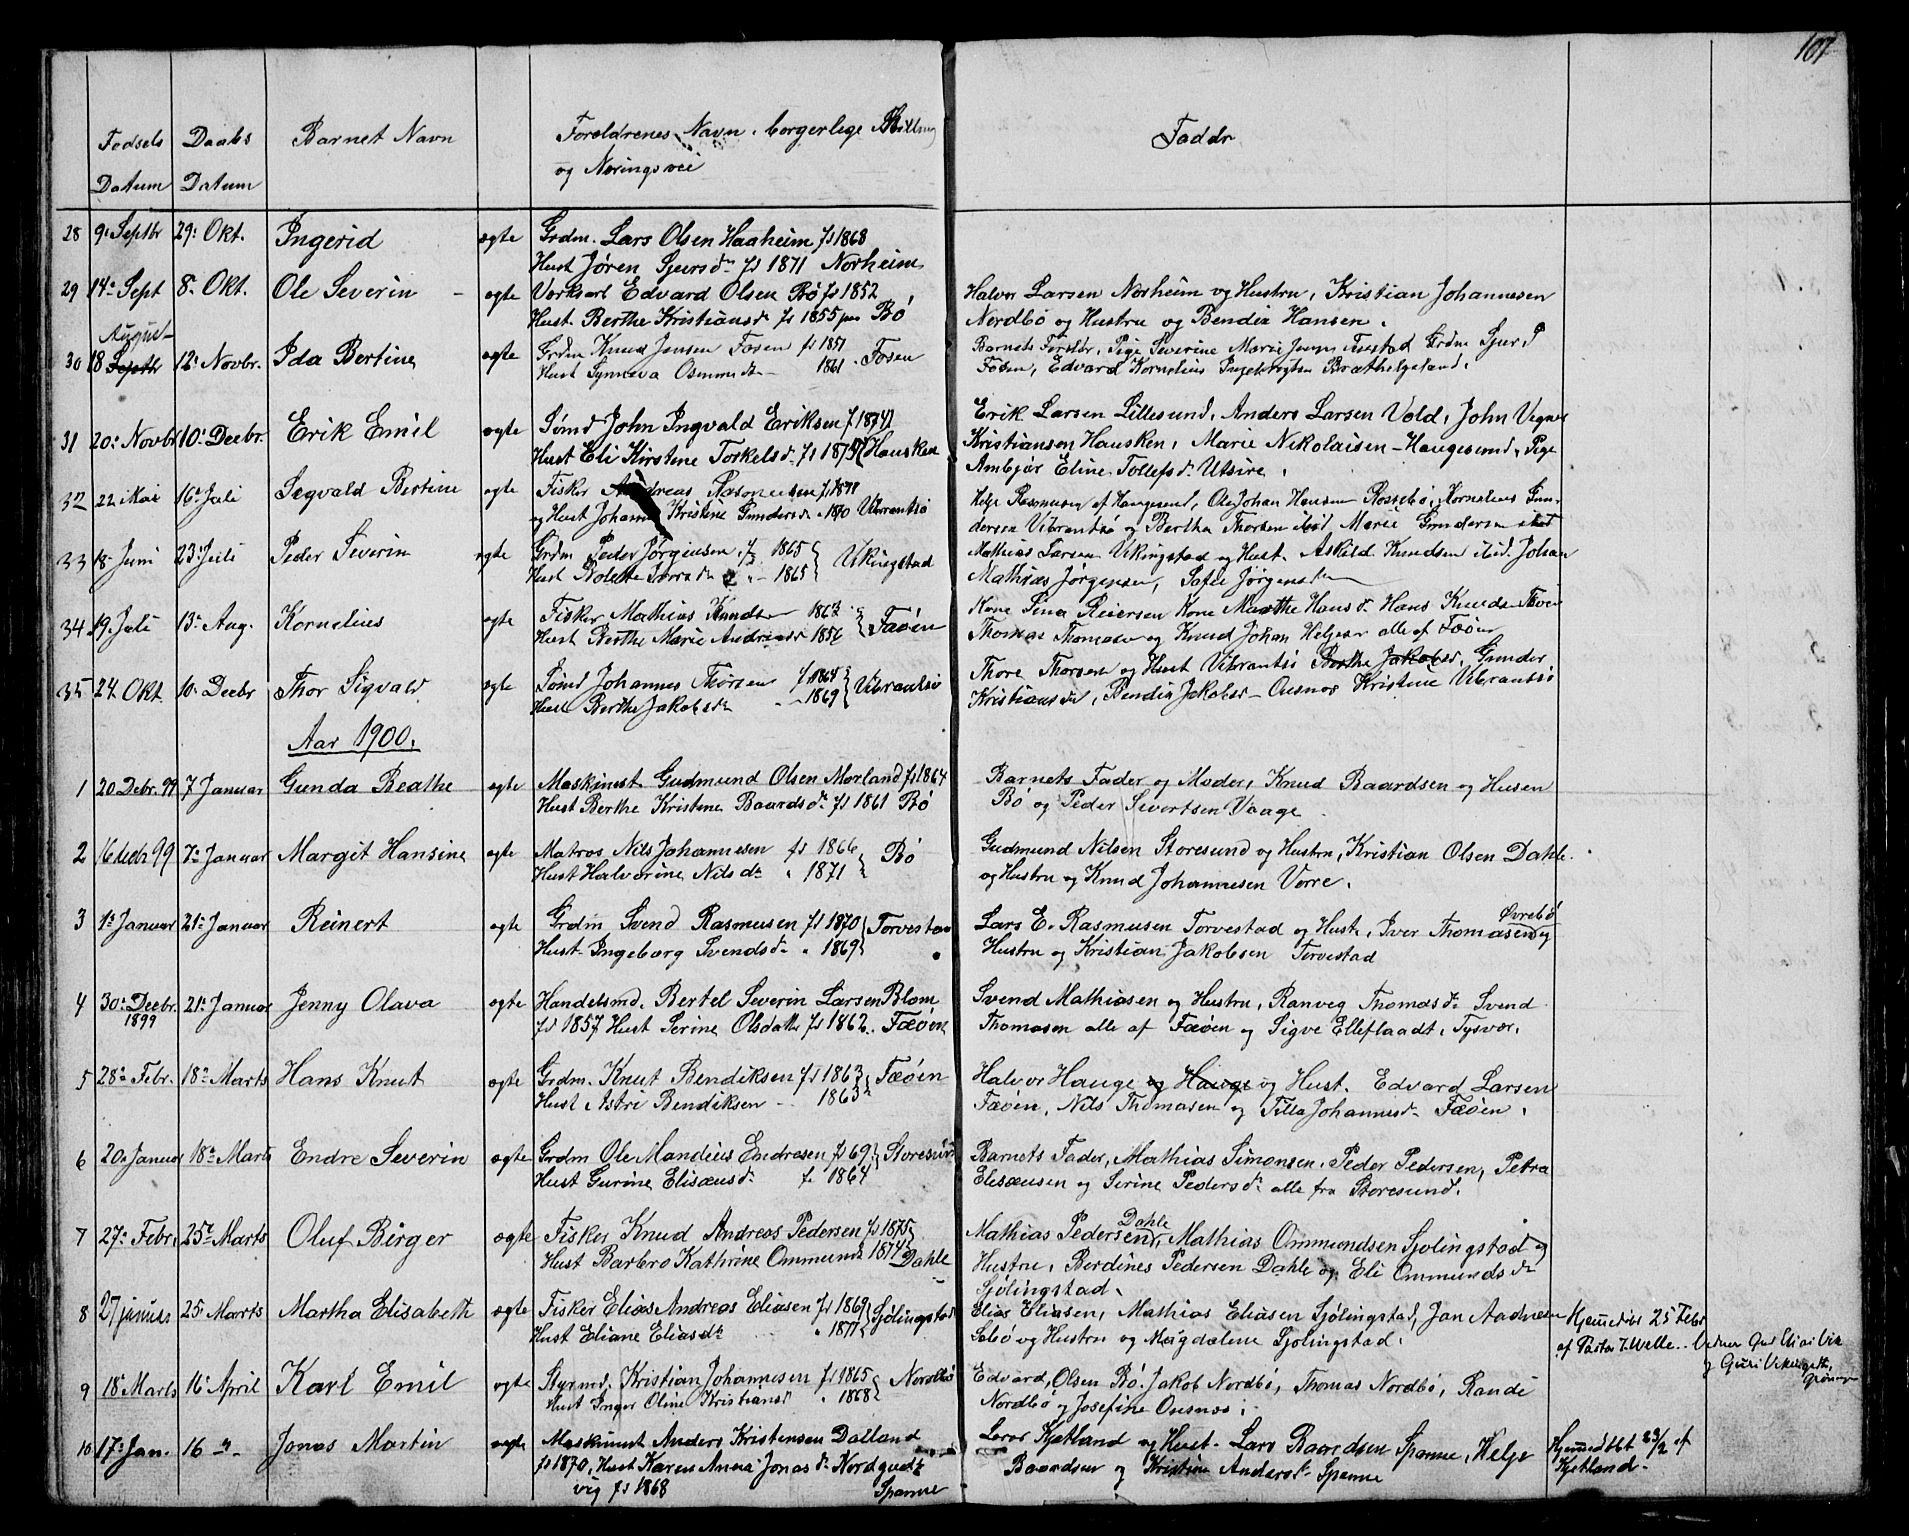 107
Fodsels Datum
Daabs Datum
Barnet Navn
Foreldrenes Navn borgerlege Stilling
og Noringsvei
Faddr
28 9. Septbr 29. Okt. Ingerid ogte Grdm. Lars Olsen Haaheim fs 1868
Hust Jøren Sjursdr fs 1871 Norheim
29 14. Sept 8. Okt. Ole Severin ogte Edvard Olsen Bø fs 1852
Hust. Berthe Kristiansdr fs 1855 Bø
Halvor Larsen Norheim og Hustru, Kristian Johannesen
Nordbø og Hustru og Bendia Hansen.
30 18 Septb 12. Novbr. Ida Bertine ogte Grdm Knud Jensen Fosen fs 1851
Hust Synneva 1861 Fosen
Barnets Foreldr, Pige Severine Marie Grdm Sjur
Fosen, Edvard Kornelius
31 20. Novbr 10. Decbr. Erik Emil ogte Sømd John Ingvald Eriksen f. 1874
Hust Eli Kirstine Torkelsdr fs 1875 Hausken
Erik Larsen Lillesund, Anders Larsen Vold, John
Kristiansen Hausken, Marie Nikolaisen - Haugesund, Pige
Ambjør Eline Tollefsdr Utsire.
32 22 Mai 16. Juli Segvald Bertine ogte Fisker Andreas Rasmusen
og Hust Johanne Kristine Gundersdr 1870 Vibrantsø
Helge Rasmusen af Haugesund, Ole Johan Hansen Rossebø, Kornelius Gun-
dersen Vibrantsø og Bertha Thorsen ibid, Marie Gundersen
33 18. Juni 23. Juli Peder Severin ogte Grdm Peder Jørgensen fs 1865
Hust Nolette 1865 Vikingstad
Mathias Larsen Vikingstad og Hust. Askild Knudsen ibid. Johan
Mathias Jørgensen, Jørgens
34 19. Juli 13. Aug. Kornelius ogte Fisker Mathias Knudsen 1867
Hust Berthe Marie Andreasdr 1856 Fæøen
Kone Sina Reiersen Kone Marthe Hansdr Hans Knudsen
Thomas Thomasen og Knud Johan Helgesen alle af Fæøen
35 24. Okt. 10. Decbr Thor Sigvald ogte Sømd Johannes Thorsen fs 1865
Hust Berthe Jakobsdr 1869 Vibrantsø
Thore Thorsen og Hust Vibrantsø Berthe Jakobsdr, Gunder
Kristiansdr, Bendia Jakobsdr - Ousnes Kristine Vibrantsø
Aar 1900.
1 20 Debr. 99 7 Januar Gunda Beathe ogte Maskinist Gudmund Olsen Morland fs 1864
Hust Berthe Kristine Baardsdr fs 1861 Bø
Barnets Fader og Moder, Knud Baardsen og Husen
Bø og Peder Sivertsen Vaage
2 16 decbr 99 7. Januar Margit Hansine ogte Matros Nils Johannesen fs 1866
Hust Halvorine Nilsdr " 1871 Bø
Gudmund Nilsen Storesund og Hustru, Kristian Olsen Dahle
og Hustru og Knud Johannesen Vorre.
3 1. Januar 21. Januar Reinert ogte Grdm Svend Rasmusen fs 1870 Torvestad
Hust Ingeborg Svendsdr " 1869
Lars E. Rasmusen Torvestad og Hust, Iver Thomasen Øvrebø og
Hustru og Kristian Jakobsen Torvestad
4 30. Decbr. 1899 21. Januar Jenny Olava ogte Handelsmd. Bertel Severin Larsen Blom
fs 1857 Hust Serine Olsdatter fs 1862. Fæøen
Svend Mathiasen og Hustru, Ranveg Thomasdr Svend
Thomasen alle af Fæøen og Sigve Elleflaadt, Tysvær.
5 28. Febr. 18. Marts Hans Knut ogte Grdm. Knut Bendiksen fs 1863 Fæøen
Hust Astri Bendiksen - 1863
Halvor Hauge og Hauge og Hust. Edvard Larsen
Fæøen, Nils Thomasen og Tilla Johannesdr Fæøen.
6 20. Januar 18. Marts Endre Severin ogte Grdm Ole Mandius Endresen fs 69 Storesund
Hust Gurine Elisæusdr fs 1864
Barnets Fader, Mathias Simonsen, Peder Pedersen, Petra
Elisæusen og Serine Pedersdr alle fra Storesund.
7 27. Febr. 25. Marts Oluf Birger ogte Fisker Knud Andreas Pedersen fs 1875
Hust Barbro Kathrine Ommunds 1874 Dahle
Mathias Pedersen Dahle, Mathias Ommundsen Sjolingstad og
Hustru, Berdines Pedersen Dahle og Eli Ommundsdr
Sjølingstad.
8 27 januar 25. Marts Martha Elisabeth ogte Fisker Elias Andreas Eliasen fs 1869 Sjølingstad
Hust Eliane Eliasdr " 1871
Elias Eliasen, Mathias Eliasen Sjølingstad, Jan Aadnesen
Sebø og Hustru og Magdalene Sjolingstad.
Hjemedøbt 25 Febr
af Pastor I. Welle.
9 18. Marts 16. April Karl Emil ogte Styrmd. Kristian Johannesen fs 1865 Nordbø
Hust Inger Oline Kristiansd " 1868
Edvard Olsen Bø, Jakob Nordbø, Thomas Nordbø, Randi
Nordbø og Josefine Ousnes.
10 17. Jan. 16 " Jonas Martin ogte Maskinist Anders Kristensen Dalland
fs 1870, Hust Karen Anna Jonasdr Nordqved-
vig fs 1868 Spanne
Kjetland og Hust. Lars Baardsen Spanne, Helge
Baardsen og Kristine Andersdr Spanne
Hjemedøbt 23/2 af
Kjetland.